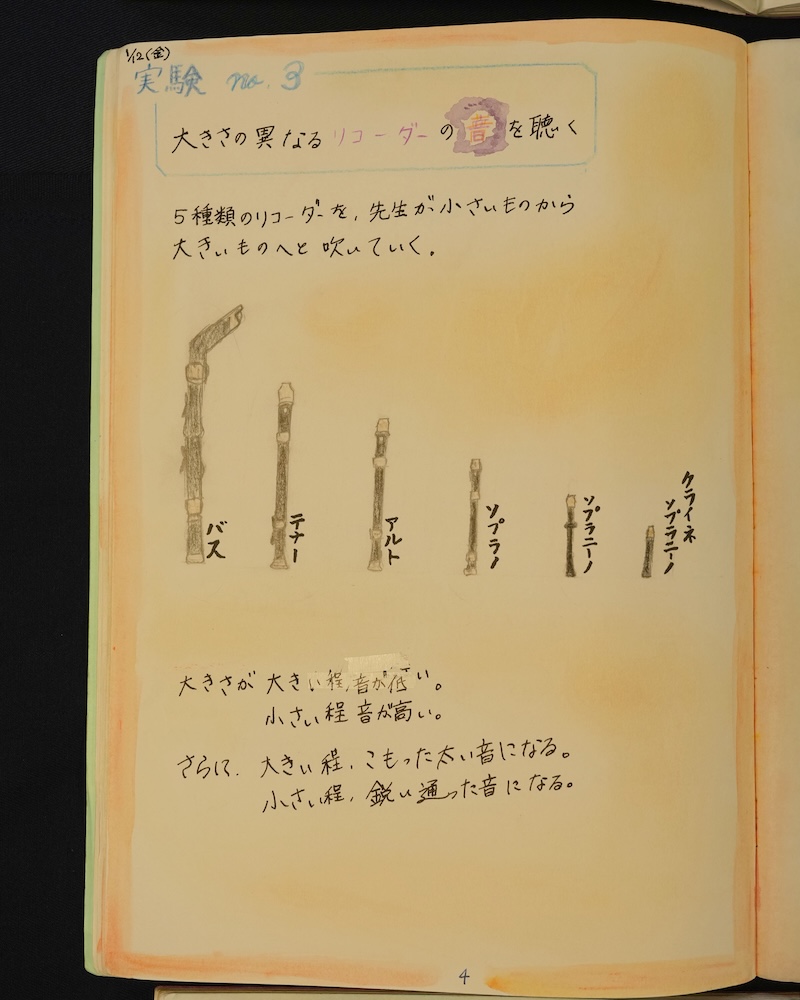 1/12(金)
実験 no.3
大きさの異なるリコーダーの音を聴く
5種類のリコーダーを、先生が小さいものから
大きいものへと吹いていく。
バス
テナー
アルト
ソプラノ
ソプラニーノ
クライネ
ソプラニーノ
大きさが 大きい程音が低い。
小さい程音が高い。
さらに、大きい程、こもった太い音になる。
小さい程、鋭い通った音になる。
4